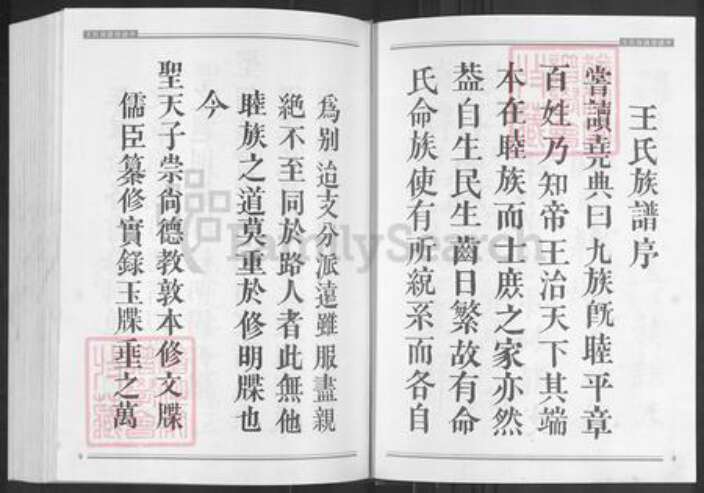 王氏族譜序
嘗讀堯典曰九族既睦平章
百姓乃知帝王治天下其端
本在睦族而士庶之家亦然
葢自生民生齒日繁故有命
氏命族使有所統系而各自
為别迨支分派遠雖服盡親
絶不至同於路人者此無他
睦族之道莫重於修明牒也
今
聖天子崇尚德教敦本修文牒
儒臣纂修實錄玉牒垂之萬
FamilySearch